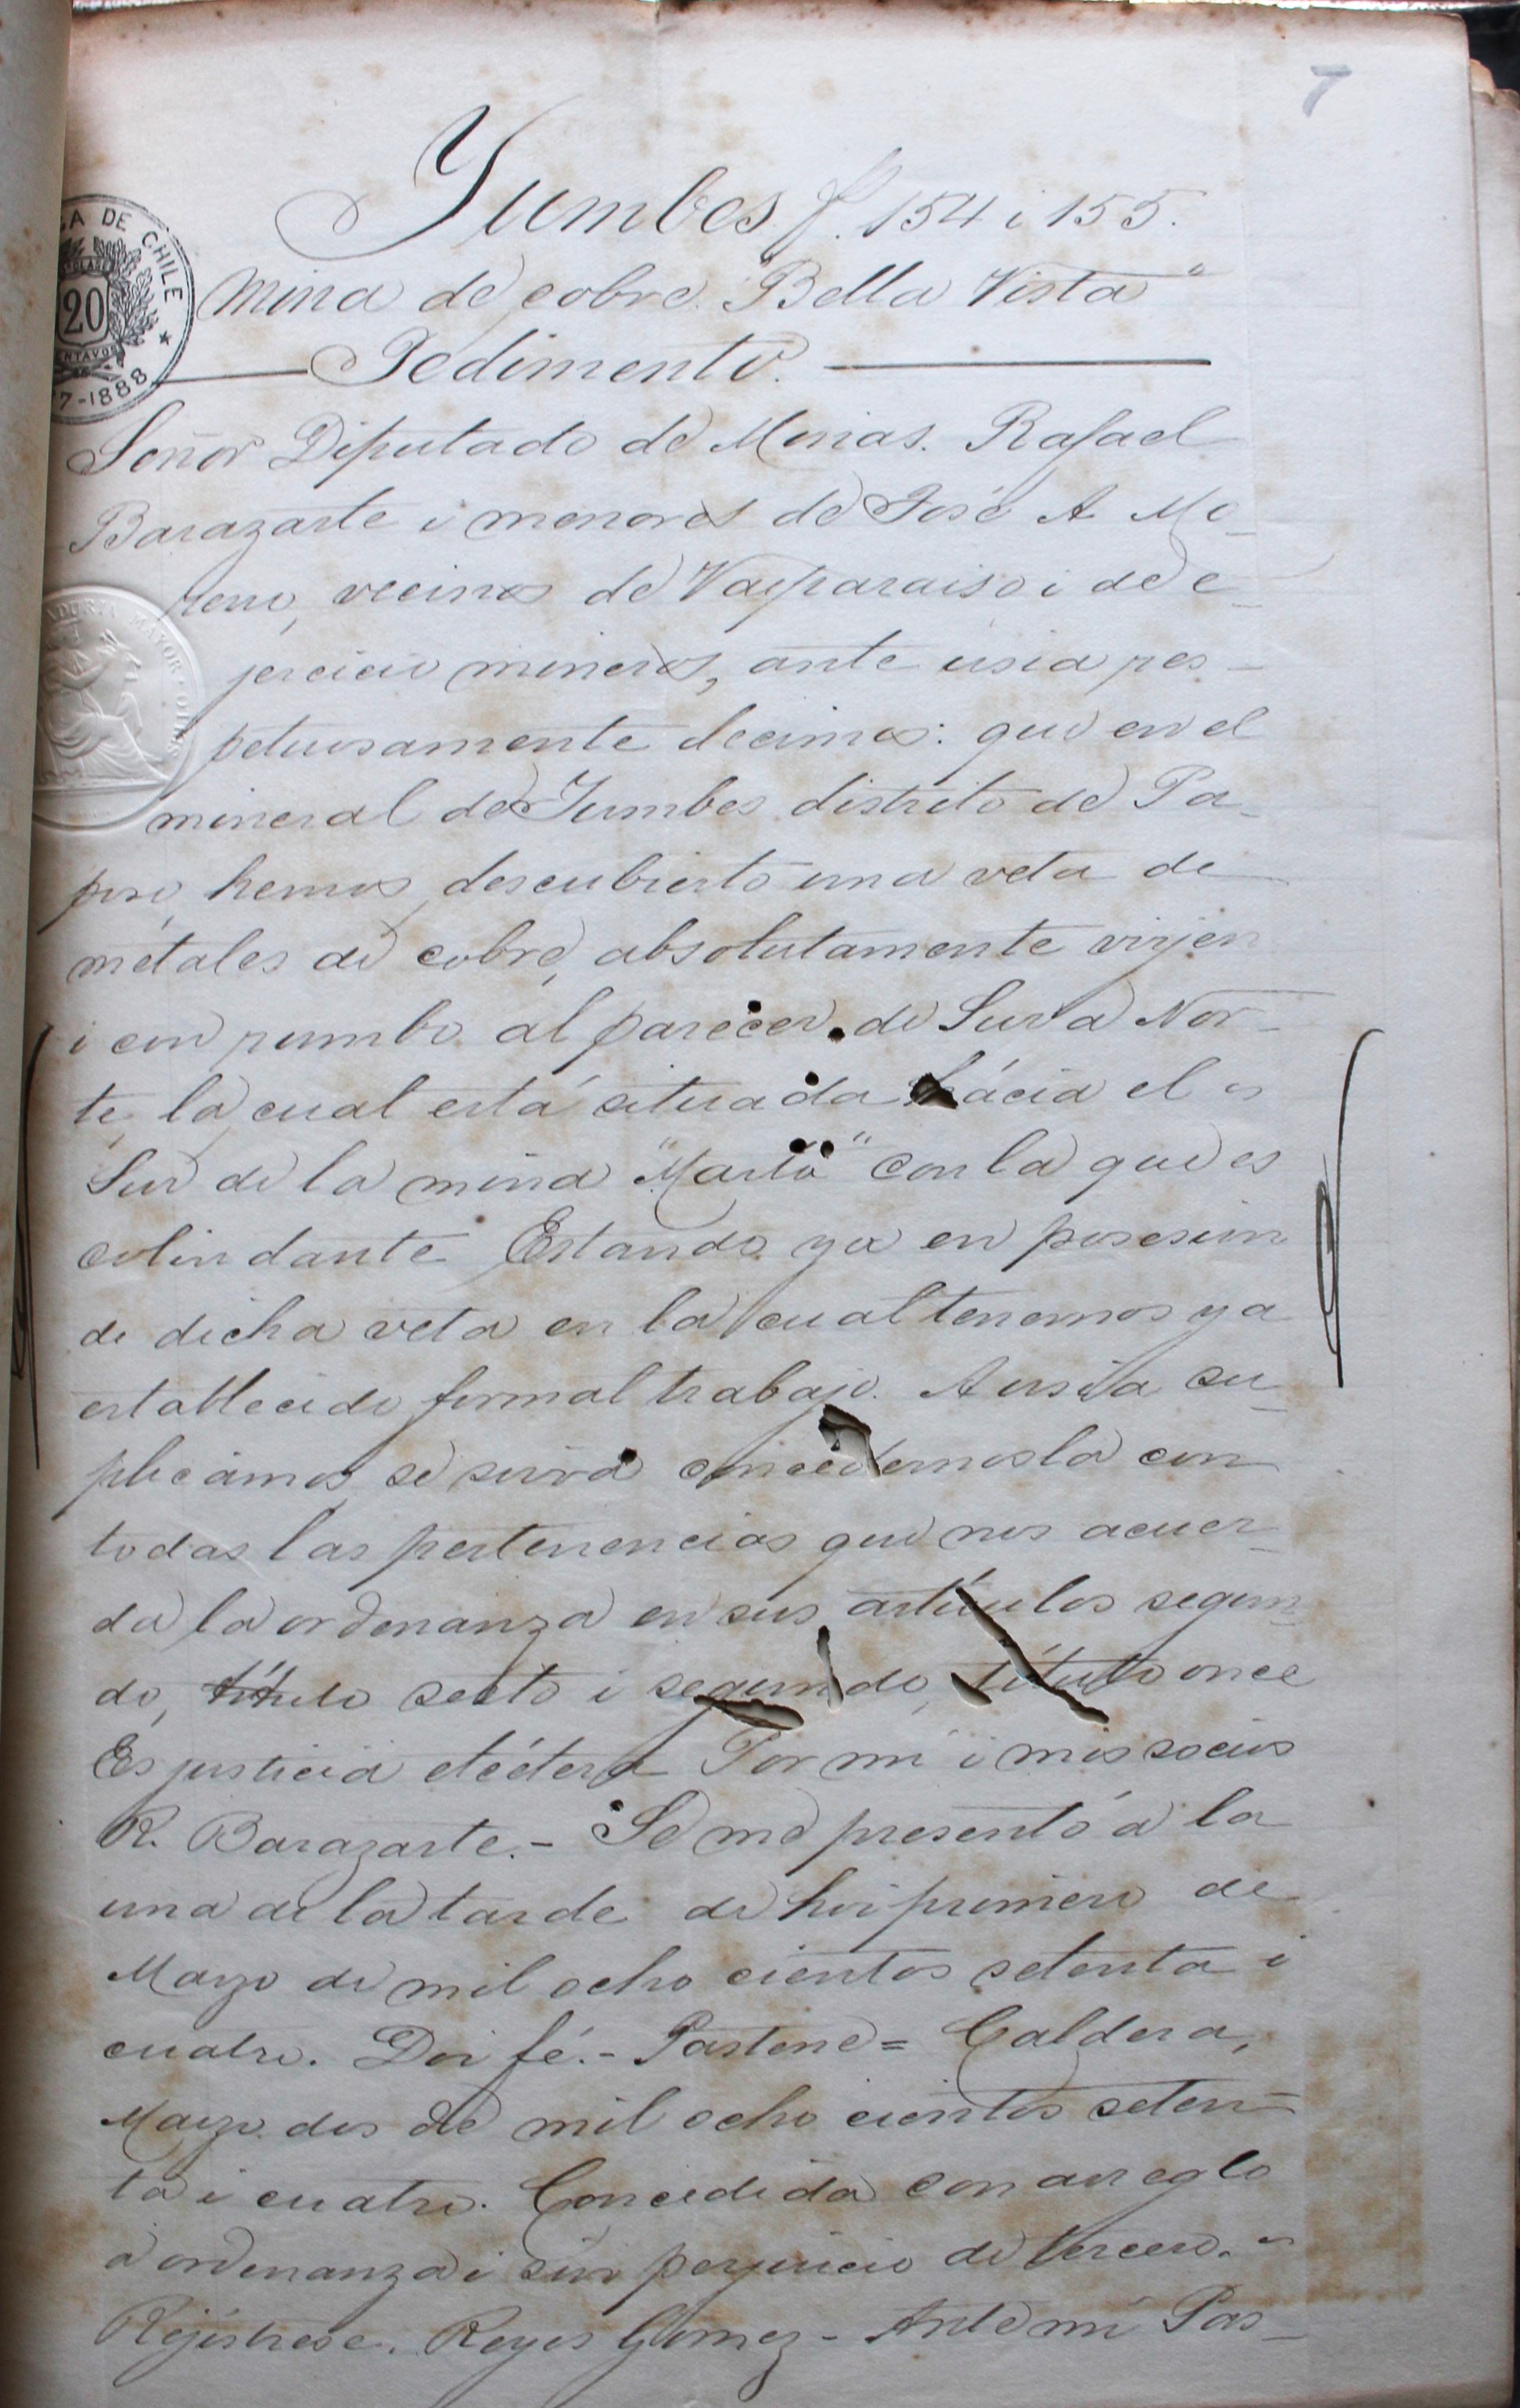 7
Tumbes f. 154 i 155.
Mina de cobre "Bella Vista"
Pedimento.
A DE CHILE *
20
7-1888
MAYOR
Señor Diputado de Minas. Rafael
Barazarte i menores de José A. Mo-
reno, vecinos de Valparaiso i de e-
jercicio mineros, ante usia res-
petuosamente decimos: que en el
mineral de Tumbes distrito de Pa-
poso, hemos descubierto una veta de
metales de cobre, absolutamente virjen
i con rumbo al parecer de Sur a Nor-
te, la cual está situada hácia el
Sur de la mina "Marta" con la que es
colindante Estando ya en posesion
de dicha veta en la cual tenemos ya
establecido formal trabajo. A usia su-
plicamos se sirva concedernosla con
todas las pertenencias que nos acuer-
da la ordenanza en sus artículos segun-
do, título sesto i segundo, título once
Es justicia etcétera Por mi i mis socios
R. Barazarte.- Se me presentó a la
una de la tarde de hoi primero de
Marzo de mil ocho cientos setenta i
cuatro. Doi fé.- Pastene= Caldera,
Marzo dos de mil ocho cientos seten-
ta i cuatro. Concedida con arreglo
a ordenanza i sin perjuicio de tercero.-
Rejistrese. Reyes Gomez - Ante mi Pas-